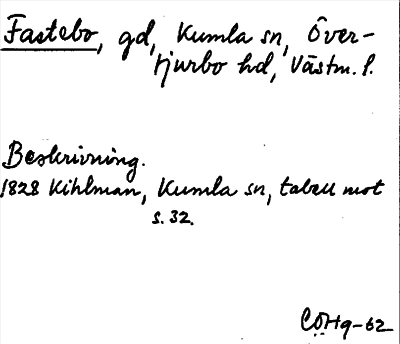 Fastebo, gd, Kumla sn, Över-
tjurbo hd, Västm. l.
Beskrivning.
1828 Kihlman, Kumla sn, tabell mot
s. 32.
COHg-62